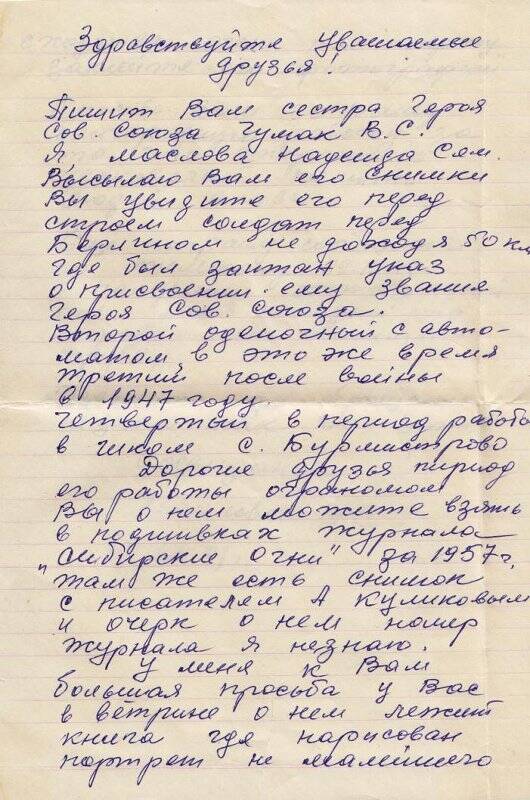 Здравствуйте уважаемые
друзья!
Пишит Вам сестра Героя
Сов. Союза Чумак В.С.
Я Маслова Надежда Сем.
Высылаю Вам его снимки
Вы увидите его перед
строем солдат перед
Берлином не доходя 50 км
где был зачтан указ
о присвоении ему звания
Героя Сов. Союза.
Второй одиночный с авто-
матом, в это же время
третий после войны
в 1947 году.
Четвертый в период работы
в с. Бурмистрово
Дорогие друзья период
его работы аграномом
Вы о нем можите взять
в подшивках журнала
„Сибирские Огни" за 1957 г,
там же есть снимок
с писателям А Куликовым
и очерк о нем номер
журнала я незнаю.
У меня к Вам
большая просьба у Вас
в ветрине о нем лежит
книга где нарисован
портрет не малейшего